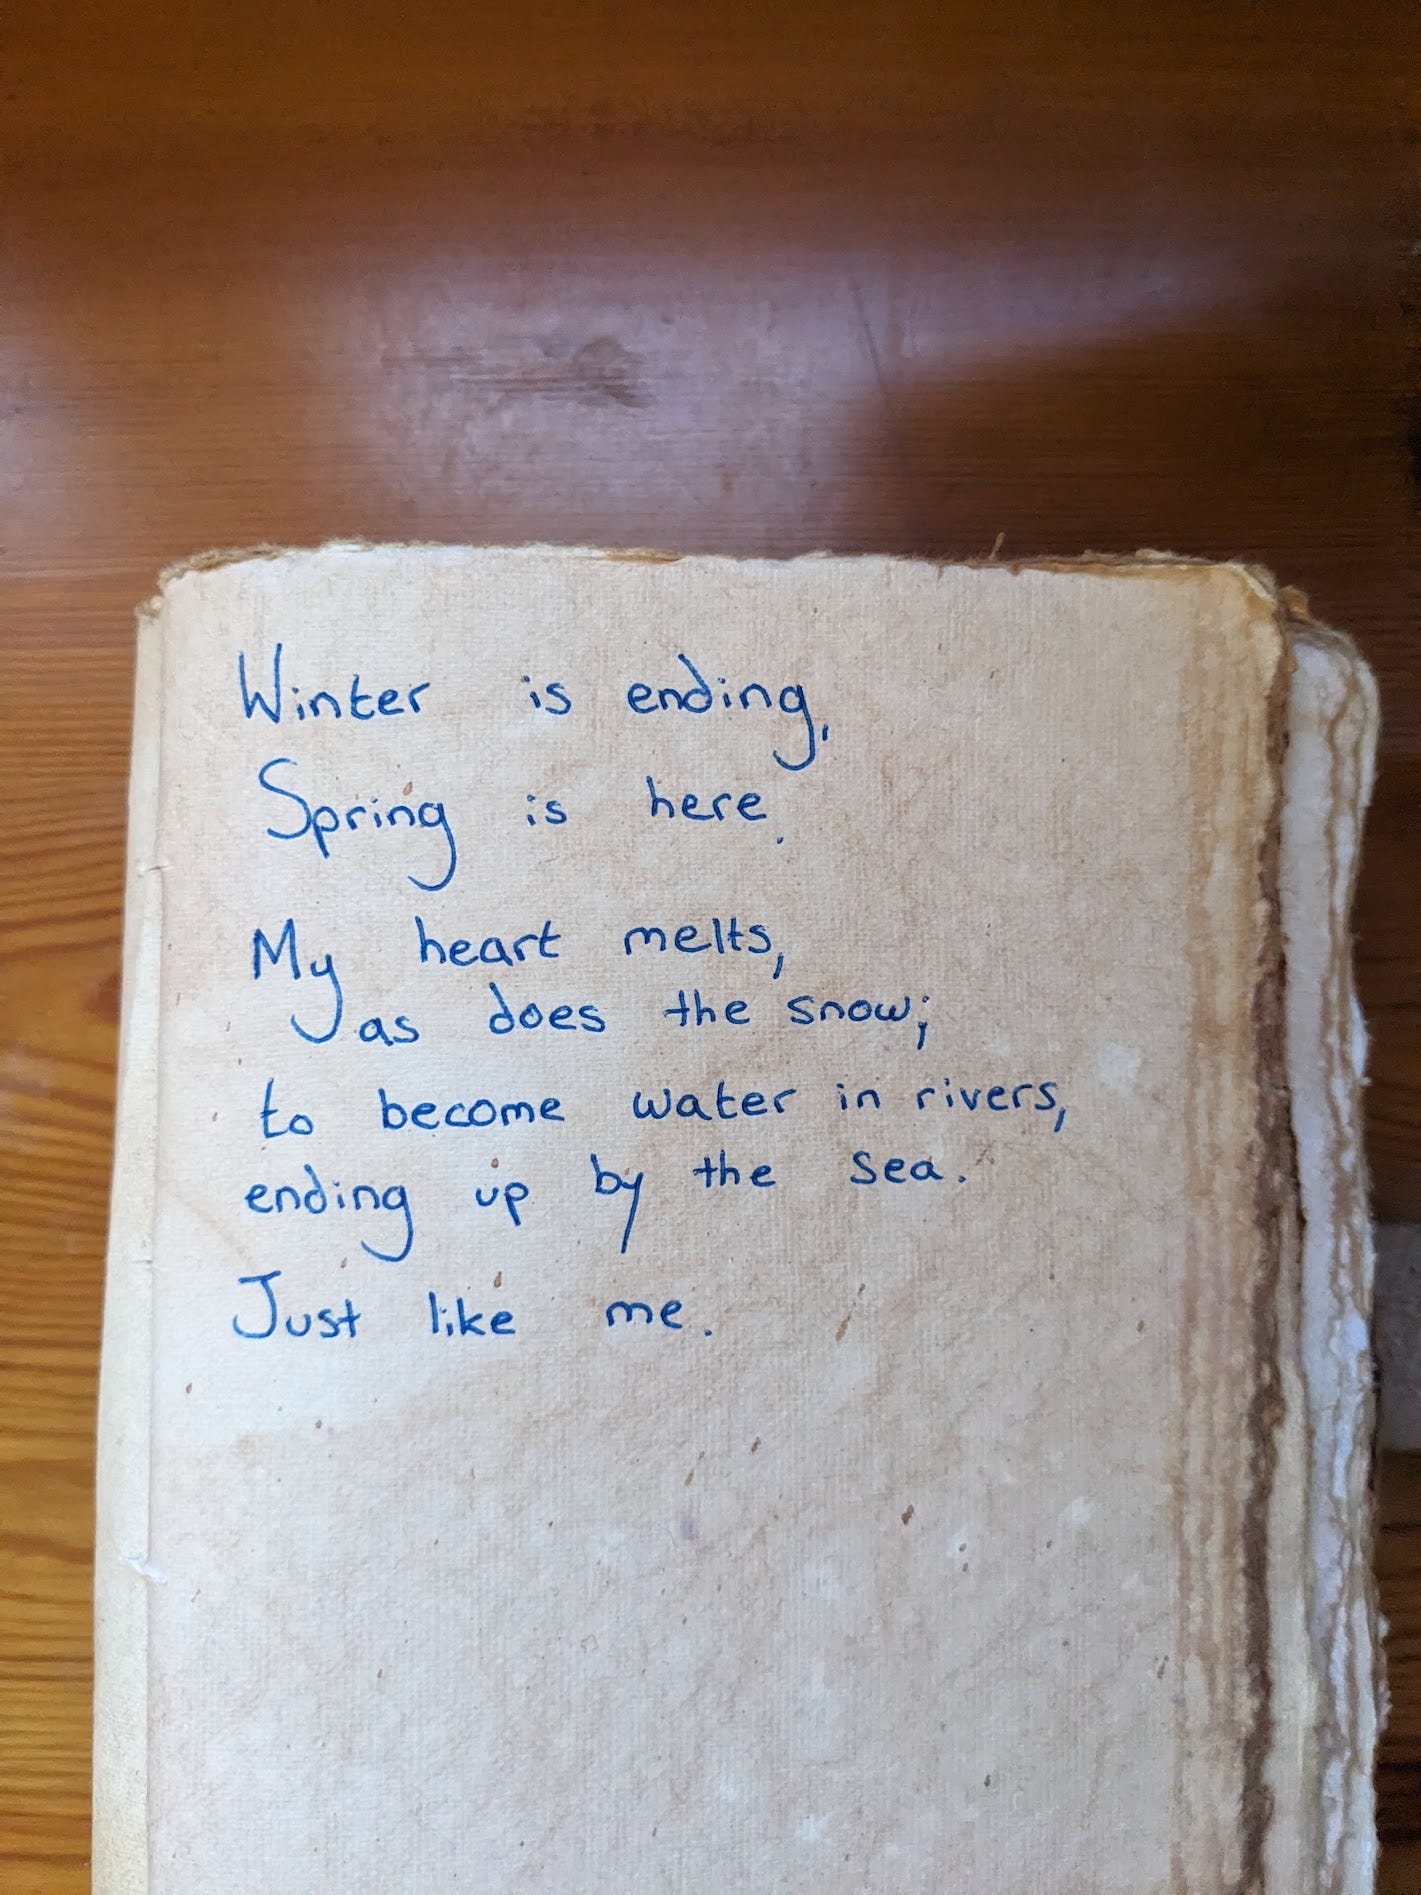 Winter is ending,
Spring is here.
My heart melts,
as does the snow;
to become water in rivers,
ending up by the sea.
Just like me.